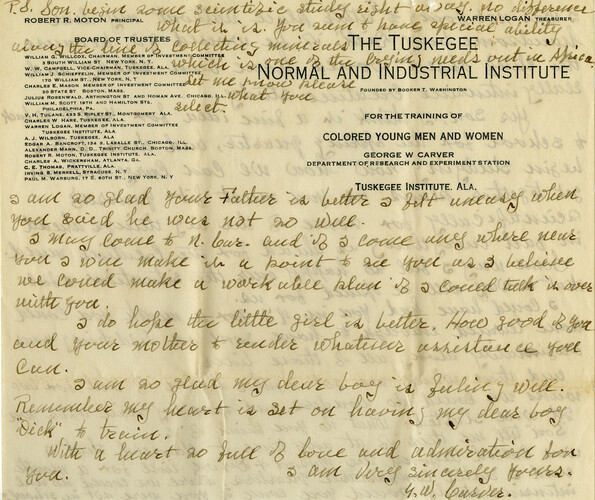 P.S. Son, begin some scientific study right away, no difference
what it is. You seem to have special ability
along the line of collecting minerals
which is one of the crying needs out in Africa.
Let me know please
what you
select.
ROBERT R. MOTON PRINCIPAL
WARREN LOGAN TREASURER
BOARD OF TRUSTEES
WILLIAM G. WILLCOX, CHAIRMAN, MEMBER OF INVESTMENT COMMITTEE
3 SOUTH WILLIAM ST. NEW YORK, N. Y.
W. W. CAMPBELL, VICE-CHAIRMAN, TUSKEGEE, ALA.
WILLIAM J. SCHIEFFELIN, MEMBER OF INVESTMENT COMMITTEE
170 WILLIAM ST., NEW YORK, N. Y.
CHARLES E. MASON, MEMBER OF INVESTMENT COMMITTEE
30 STATE ST. BOSTON, MASS.
JULIUS ROSENWALD, ARTHINGTON ST. AND HOMAN AVE. CHICAGO, ILL.
WILLIAM M. SCOTT, 19TH AND HAMILTON STS.
PHILADELPHIA, PA.
V. H. TULANE, 433 S. RIPLEY ST., MONTGOMERY ALA.
CHARLES W. HARE, TUSKEGEE, ALA.
WARREN LOGAN, MEMBER OF INVESTMENT COMMITTEE
TUSKEGEE INSTITUTE, ALA.
A. J. WILBORN, TUSKEGEE, ALA.
EDGAR A. BANCROFT, 134 S. LASALLE ST., CHICAGO, ILL.
ALEXANDER MANN, D. D., TRINITY CHURCH, BOSTON, MASS.
ROBERT R. MOTON, TUSKEGEE INSTITUTE, ALA.
CHARLES A. WICKERSHAM, ATLANTA, GA.
C. E. THOMAS, PRATTVILLE, ALA.
IRVING S. MERRELL, SYRACUSE, N. Y.
PAUL M. WARBURG, 17 E. 80TH ST., NEW YORK, N. Y
THE TUSKEGEE
NORMAL AND INDUSTRIAL INSTITUTE
FOUNDED BY BOOKER T. WASHINGTON
FOR THE TRAINING OF
COLORED YOUNG MEN AND WOMEN
GEORGE W CARVER
DEPARTMENT OF RESEARCH AND EXPERIMENT STATION
TUSKEGEE INSTITUTE, ALA.
I am so glad your Father is better I felt uneasy when
you said he was not so well.
I may come to N. Car. and if I come any where near
you I will make it a point to see you as I believe
we could make a workable plan if I could talk it over
with you.
I do hope the little girl is better. How good of you
and your mother to render whatever assistance you
can.
I am so glad my dear boy is feeling well.
Remember my heart is set on having my dear boy
"Dick" to train.
With a heart so full of love and admiration for
you. I am Very sincerely yours.
G. W. Carver.